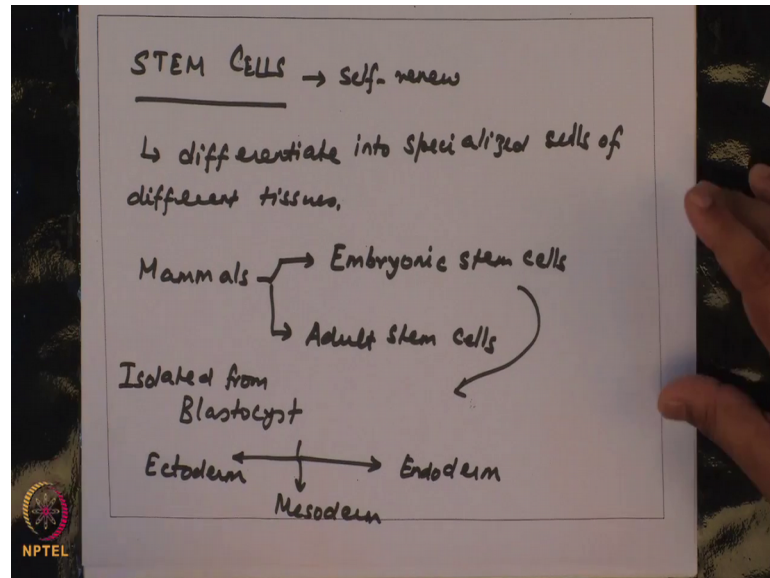 STEM CELLS → self-renew
↳ differentiate into specialized sells of
different tissues.
Mammals → Embryonic stem cells
→ Adult stem cells
Isolated from
Blastocyst
Ectoderm ← → Endoderm
Mesoderm
NPTEL